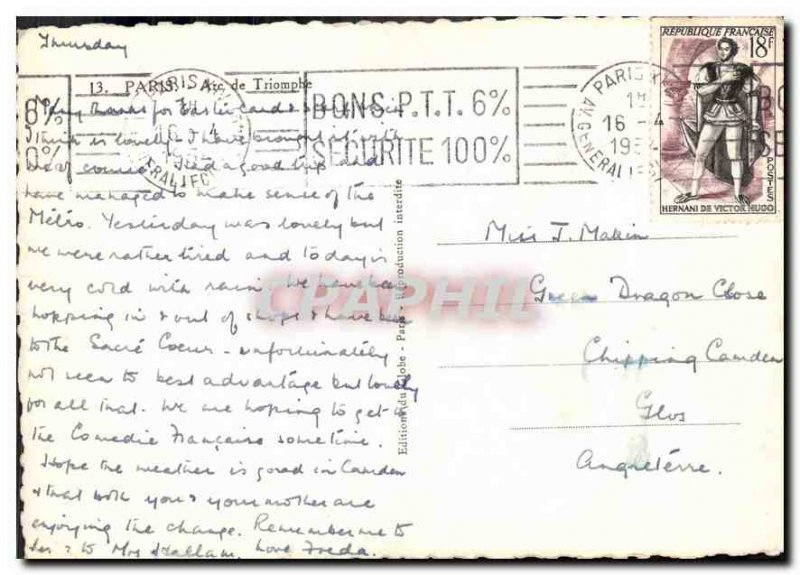 Thursday
13. PARIS. Arc de Triomphe
Many thanks for Easter card &
think is lovely. I have brought it with
me of course. Had a good trip and
have managed to make sense of the
Métro. Yesterday was lovely but
we were rather tired and today is
very cold with rain. We have been
hopping in & out of shops & have been
to the Sacré Coeur - unfortunately
not seen to best advantage but lovely
for all that. We are hoping to get to
the Comedie Française sometime.
Hope the weather is good in Camden
& that both you & your mother are
enjoying the change. Remember me to
her & to Mrs Hallam. Love Freda.
Editions du Globe - Paris - Reproduction interdite
CPAPHIL
6%
00%
PARIS
16 - 4
BONS P.T.T. 6%
SECURITE 100%
PARIS X
16 - 4
AV. GENERAL
REPUBLIQUE FRANÇAISE
18F
POSTES
HERNANI DE VICTOR HUGO
Miss J. Makin
Green Dragon Close
Chipping Camden
Glos
Angleterre.